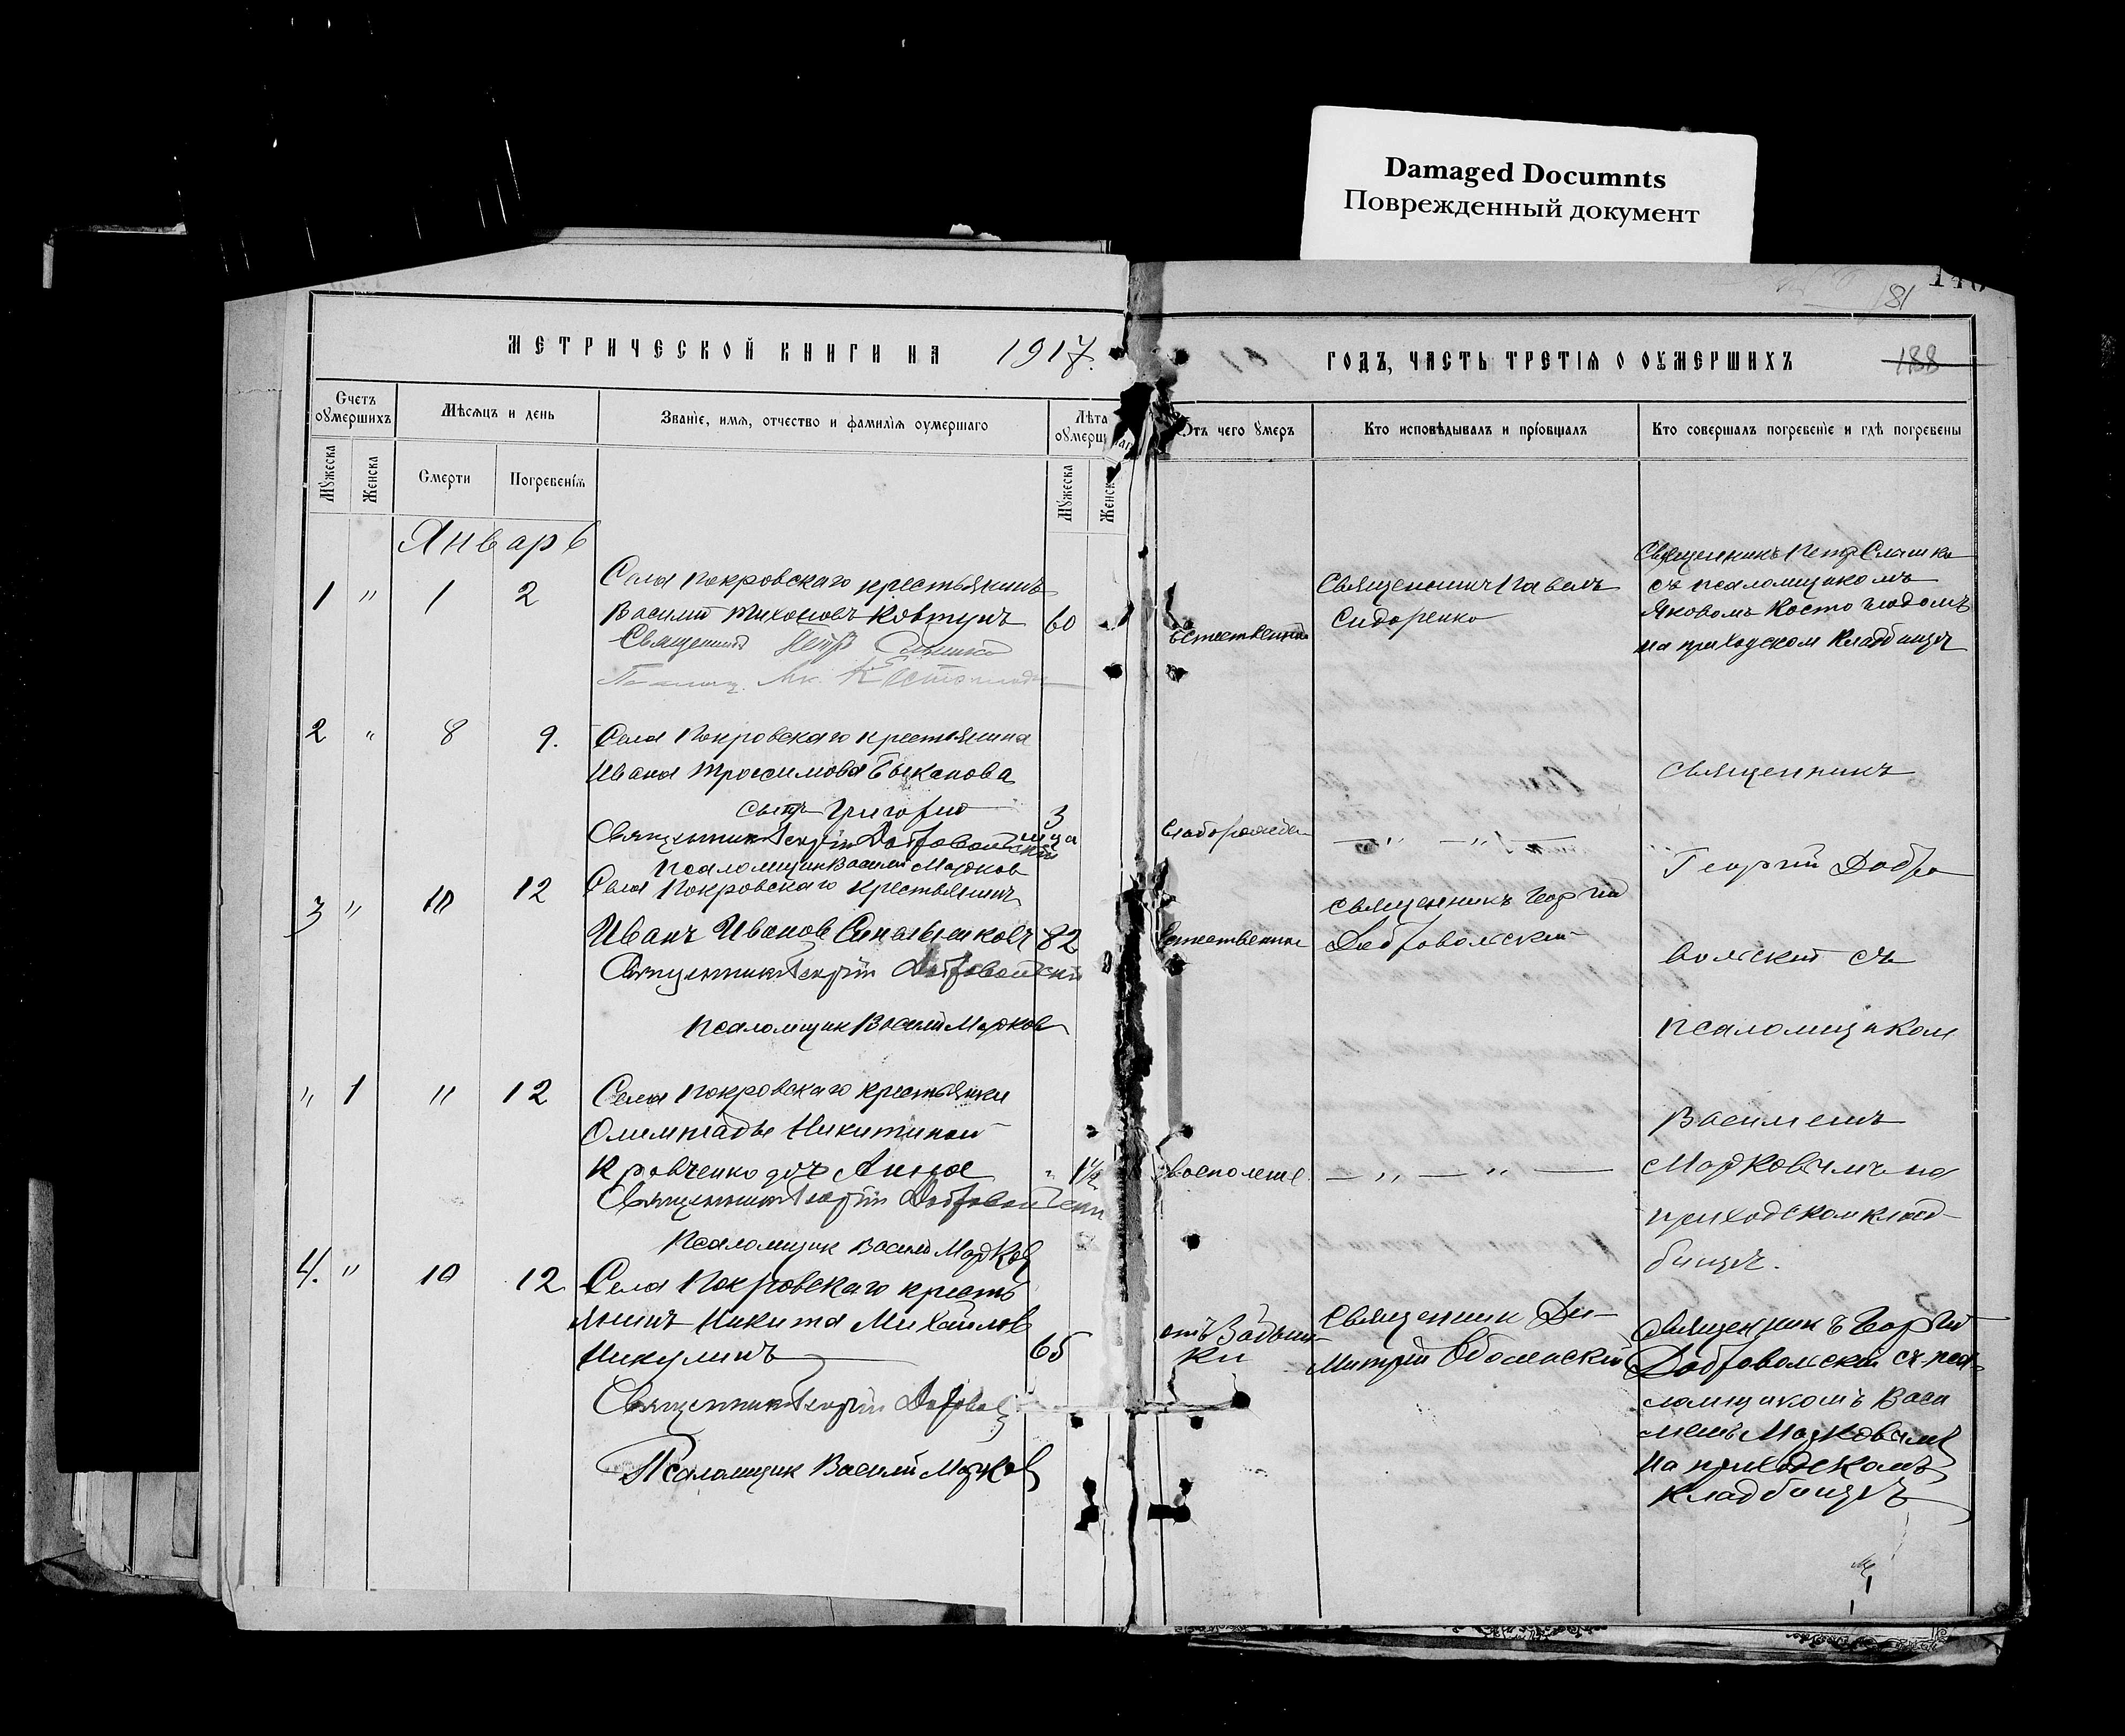 Damaged Documnts
Поврежденный документ
81
188
МЕТРИЧЕСКОЙ КНИГИ НА 1917.
ГОДЪ, ЧАСТЬ ТРЕТІЯ О ОУМЕРШИХЪ
Счетъ оумершихъ
Мѣсяцъ и день
Званіе, имя, отчество и фамилія оумершаго
Лѣта
Отъ чего умеръ
Кто исповѣдывалъ и пріобщалъ
Кто совершалъ погребеніе и гдѣ погребены
Мужеска
Женска
Смерти
Погребенія
Мужеска
Женск
Январь
1 " 1 2
Села Покровскаго крестьянинъ
Василій Тихоновъ Ковтунъ
60
Священникъ Петръ
естественной
Священникъ Павелъ
Сидоренко
Священникъ Петръ Слашко
съ псаломщикомъ
Яковомъ
на приходском кладбищѣ
2 " 8 9.
Села Покровскаго крестьянина
Ивана Трофимова
сынъ Григорій
3
мца
Священникъ Георгій Добровольскій
псаломщик Василій Марков
— „ — „ —
Священникъ
Георгій Добро
вольскій съ
псаломщиком
Василіемъ
Марковымъ на
приходском клад
бищѣ.
3 " 10 12
Села Покровскаго крестьянинъ
Иванъ Иванов
82
Священникъ Георгій Добровольскій
псаломщик Василій Марков
естественной
Священникъ Георгій
Добровольскій
" 1 11 12
Села Покровскаго крестьянки
Олимпіады Никитиной
Кравченко дочь Анна
" 1½
Священникъ Георгій Добровольскій
Псаломщик Василій Марков
— „ — „ —
4. " 10 12
Села Покровскаго кресть
янинъ Никита Михайлов
Никулинъ
65
Священникъ Георгій
Псаломщик Василій Марков
отъ Задыш
ки
Священник Ди-
митрій Оболенскій
Священникъ Георгій
Добровольскій съ пса
ломщикомъ Васи
ліемъ Марковымъ
на приходскомъ
кладбищѣ